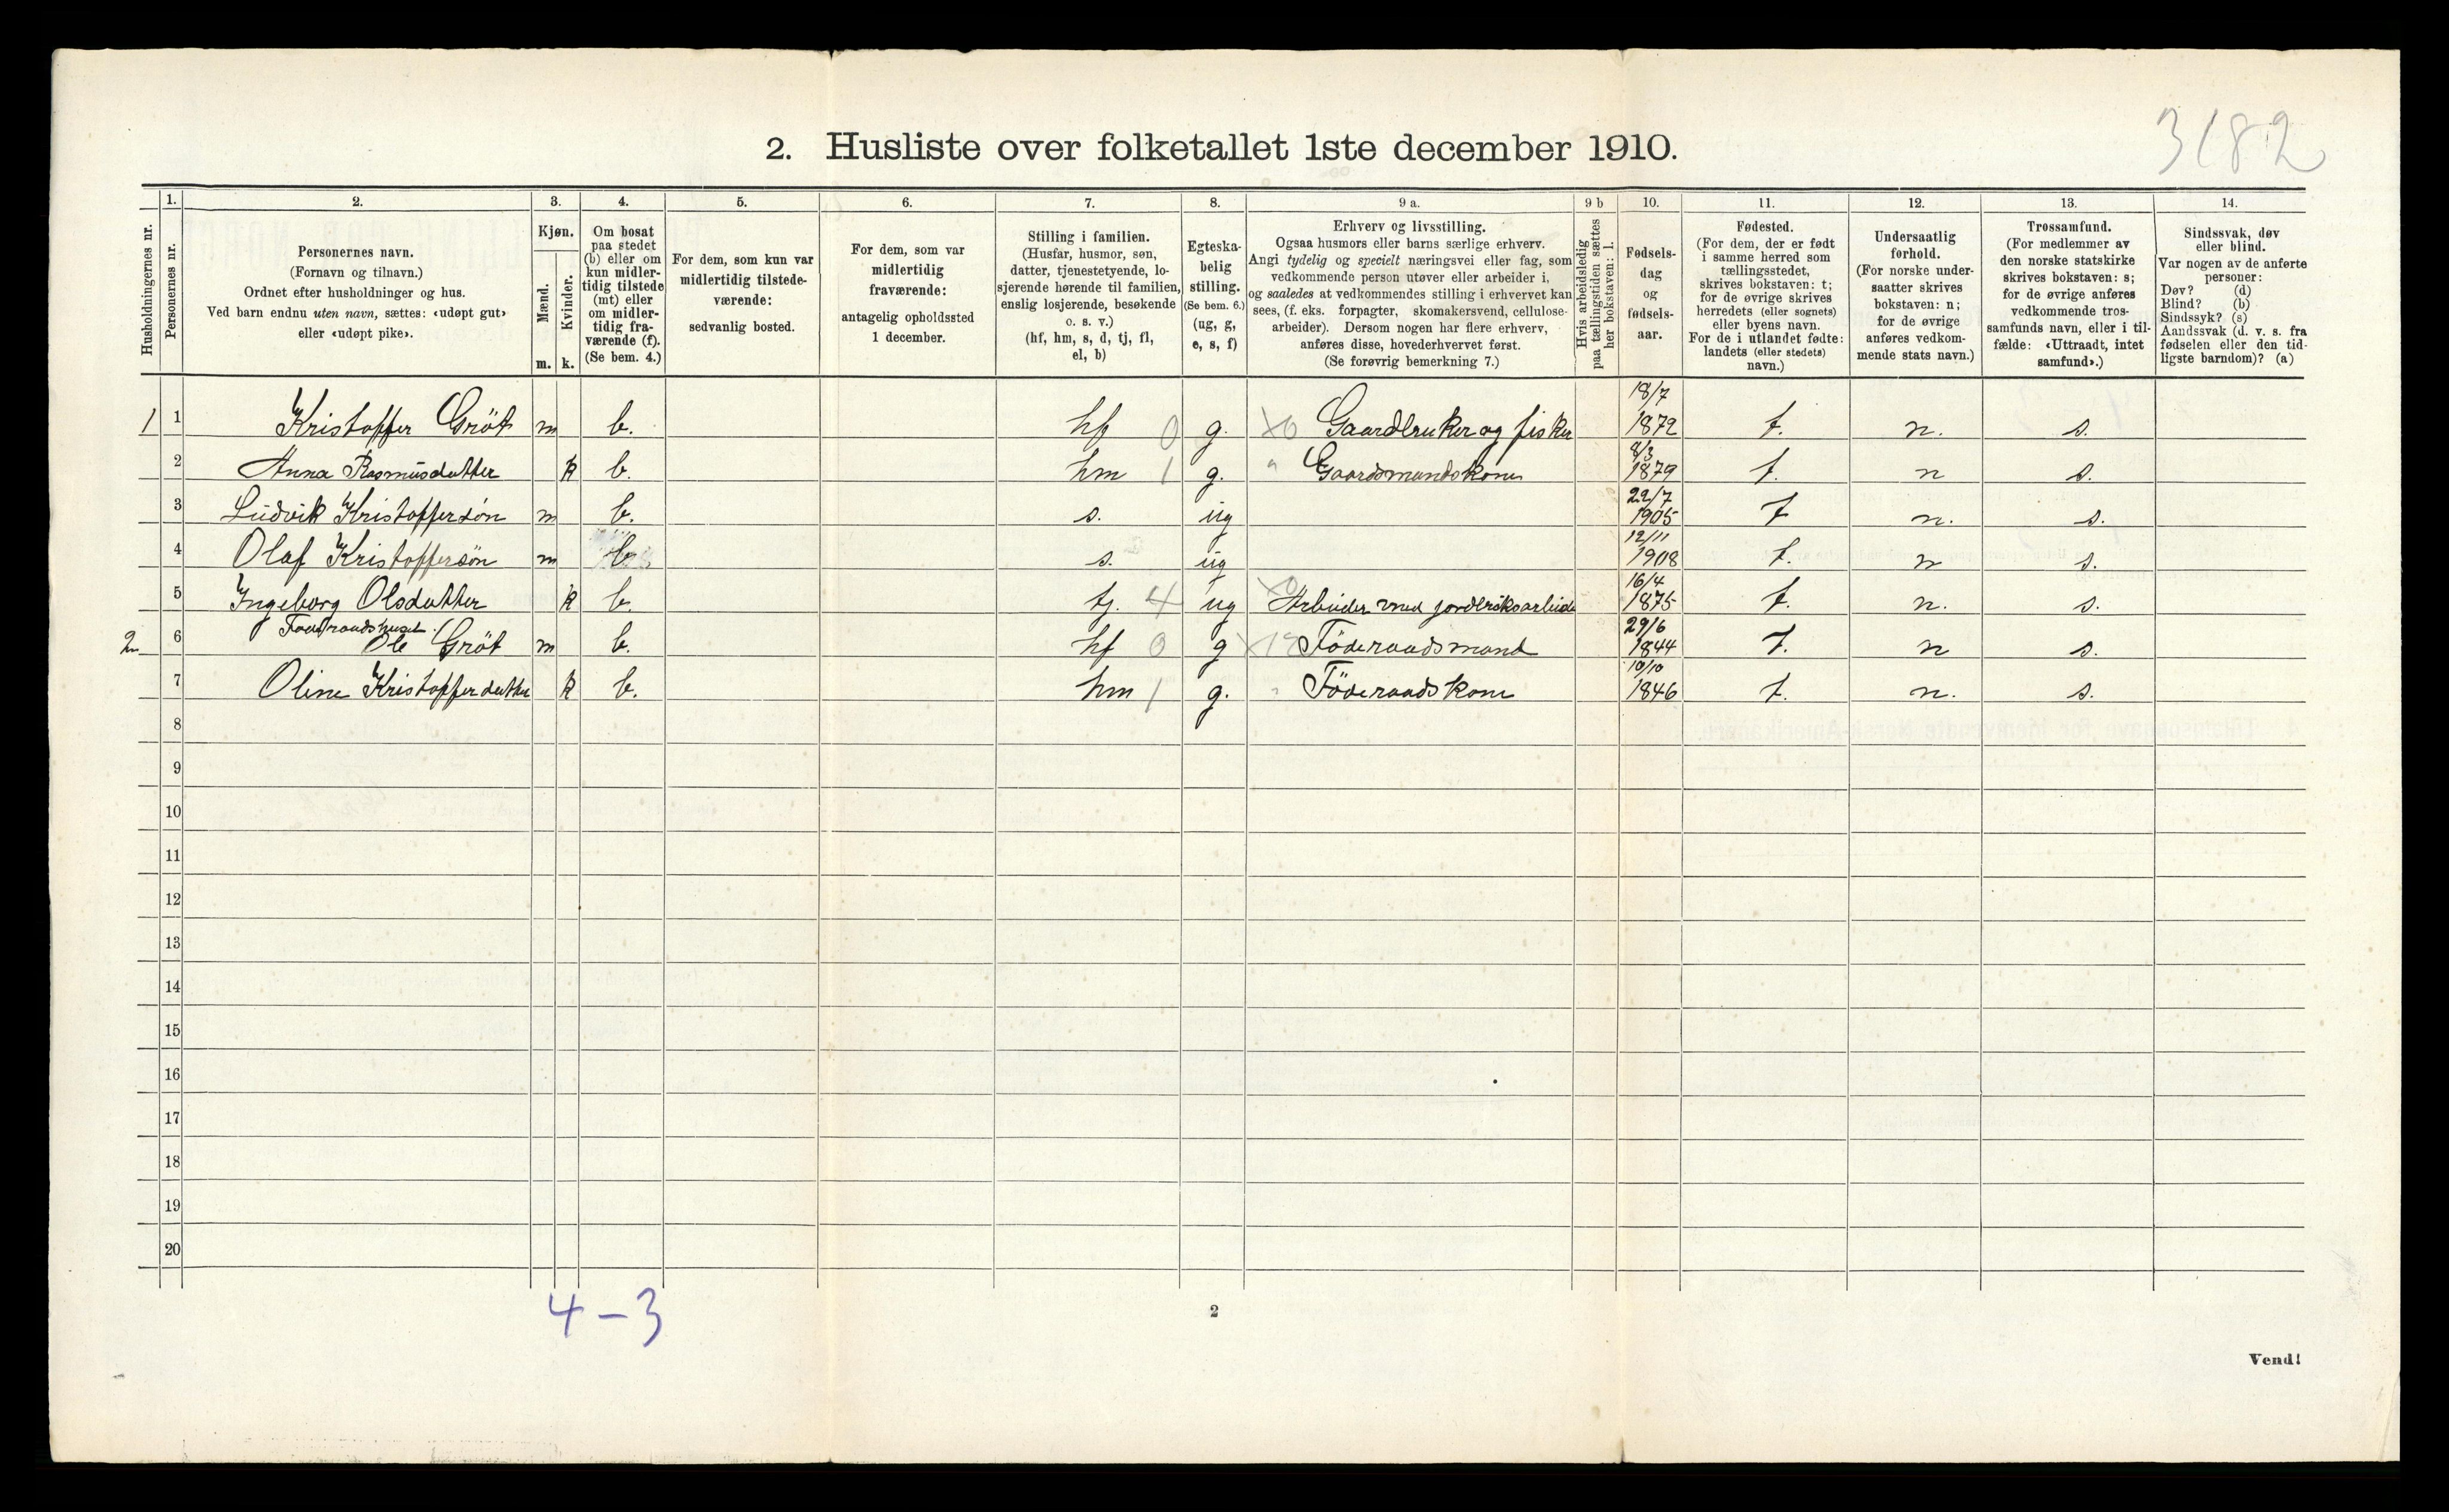 3182
2. Husliste over folketallet 1ste december 1910.
Husholdningernes nr.
1. Personernes nr.
2. Personernes navn. (Fornavn og tilnavn.) Ordnet efter husholdninger og hus. Ved barn endnu uten navn, sættes: «udøpt gut» eller «udøpt pike».
3. Kjøn. Mænd. m. Kvinder. k.
4. Om bosat paa stedet (b) eller om kun midlertidig tilstede (mt) eller om midlertidig fraværende (f). (Se bem. 4.)
5. For dem, som kun var midlertidig tilstedeværende: sedvanlig bosted.
6. For dem, som var midlertidig fraværende: antagelig opholdssted 1 december.
7. Stilling i familien. (Husfar, husmor, søn, datter, tjenestetyende, losjerende hørende til familien, enslig losjerende, besøkende o. s. v.) (hf, hm, s, d, tj, fl, el, b)
8. Egteskabelig stilling. (Se bem. 6.) (ug, g, e, s, f)
9 a. Erhverv og livsstilling. Ogsaa husmors eller barns særlige erhverv. Angi tydelig og specielt næringsvei eller fag, som vedkommende person utøver eller arbeider i, og saaledes at vedkommendes stilling i erhvervet kan sees, (f. eks. forpagter, skomakersvend, cellulosearbeider). Dersom nogen har flere erhverv, anføres disse, hovederhvervet først. (Se forøvrig bemerkning 7.)
9 b Hvis arbeidsledig paa tællingstiden sættes her bokstaven: l.
10. Fødselsdag og fødselsaar.
11. Fødested. (For dem, der er født i samme herred som tællingsstedet, skrives bokstaven: t; for de øvrige skrives herredets (eller sognets) eller byens navn. For de i utlandet fødte: landets (eller stedets) navn.)
12. Undersaatlig forhold. (For norske undersaatter skrives bokstaven: n; for de øvrige anføres vedkommende stats navn.)
13. Trossamfund. (For medlemmer av den norske statskirke skrives bokstaven: s; for de øvrige anføres vedkommende trossamfunds navn, eller i tilfælde: «Uttraadt, intet samfund».)
14. Sindssvak, døv eller blind. Var nogen av de anførte personer: Døv? (d) Blind? (b) Sindssyk? (s) Aandssvak (d. v. s. fra fødselen eller den tidligste barndom)? (a)
1 1 Kristoffer Gröt m b. hf 0 g. X0 Gaardbruker og fisker 18/7 1872 t. n. s.
2 Anna Rasmusdatter k b. hm 1 g. " Gaardmandskone 8/3 1879 t. n s.
3 Ludvik Kristoffersön m b. s. ug 22/7 1905 t n. s.
4 Olaf Kristoffersön m b. s. ug 12/11 1908 t. n s.
5 Ingeborg Olsdatter k b. tj. 4 ug X0 Arbeider med jordbruksarbeide 16/4 1875 t. n. s.
Föderaadshuset
2 6 Ole Gröt m b. hf 0 g Föderaadsmand 29/6 1844 t. n s.
7 Oline Kristofferdatter k b. hm 1 g. " Föderaadskone 10/10 1846 t. n. s.
8
9
10
11
12
13
14
15
16
17
18
19
20
4 – 3
2
Vend!